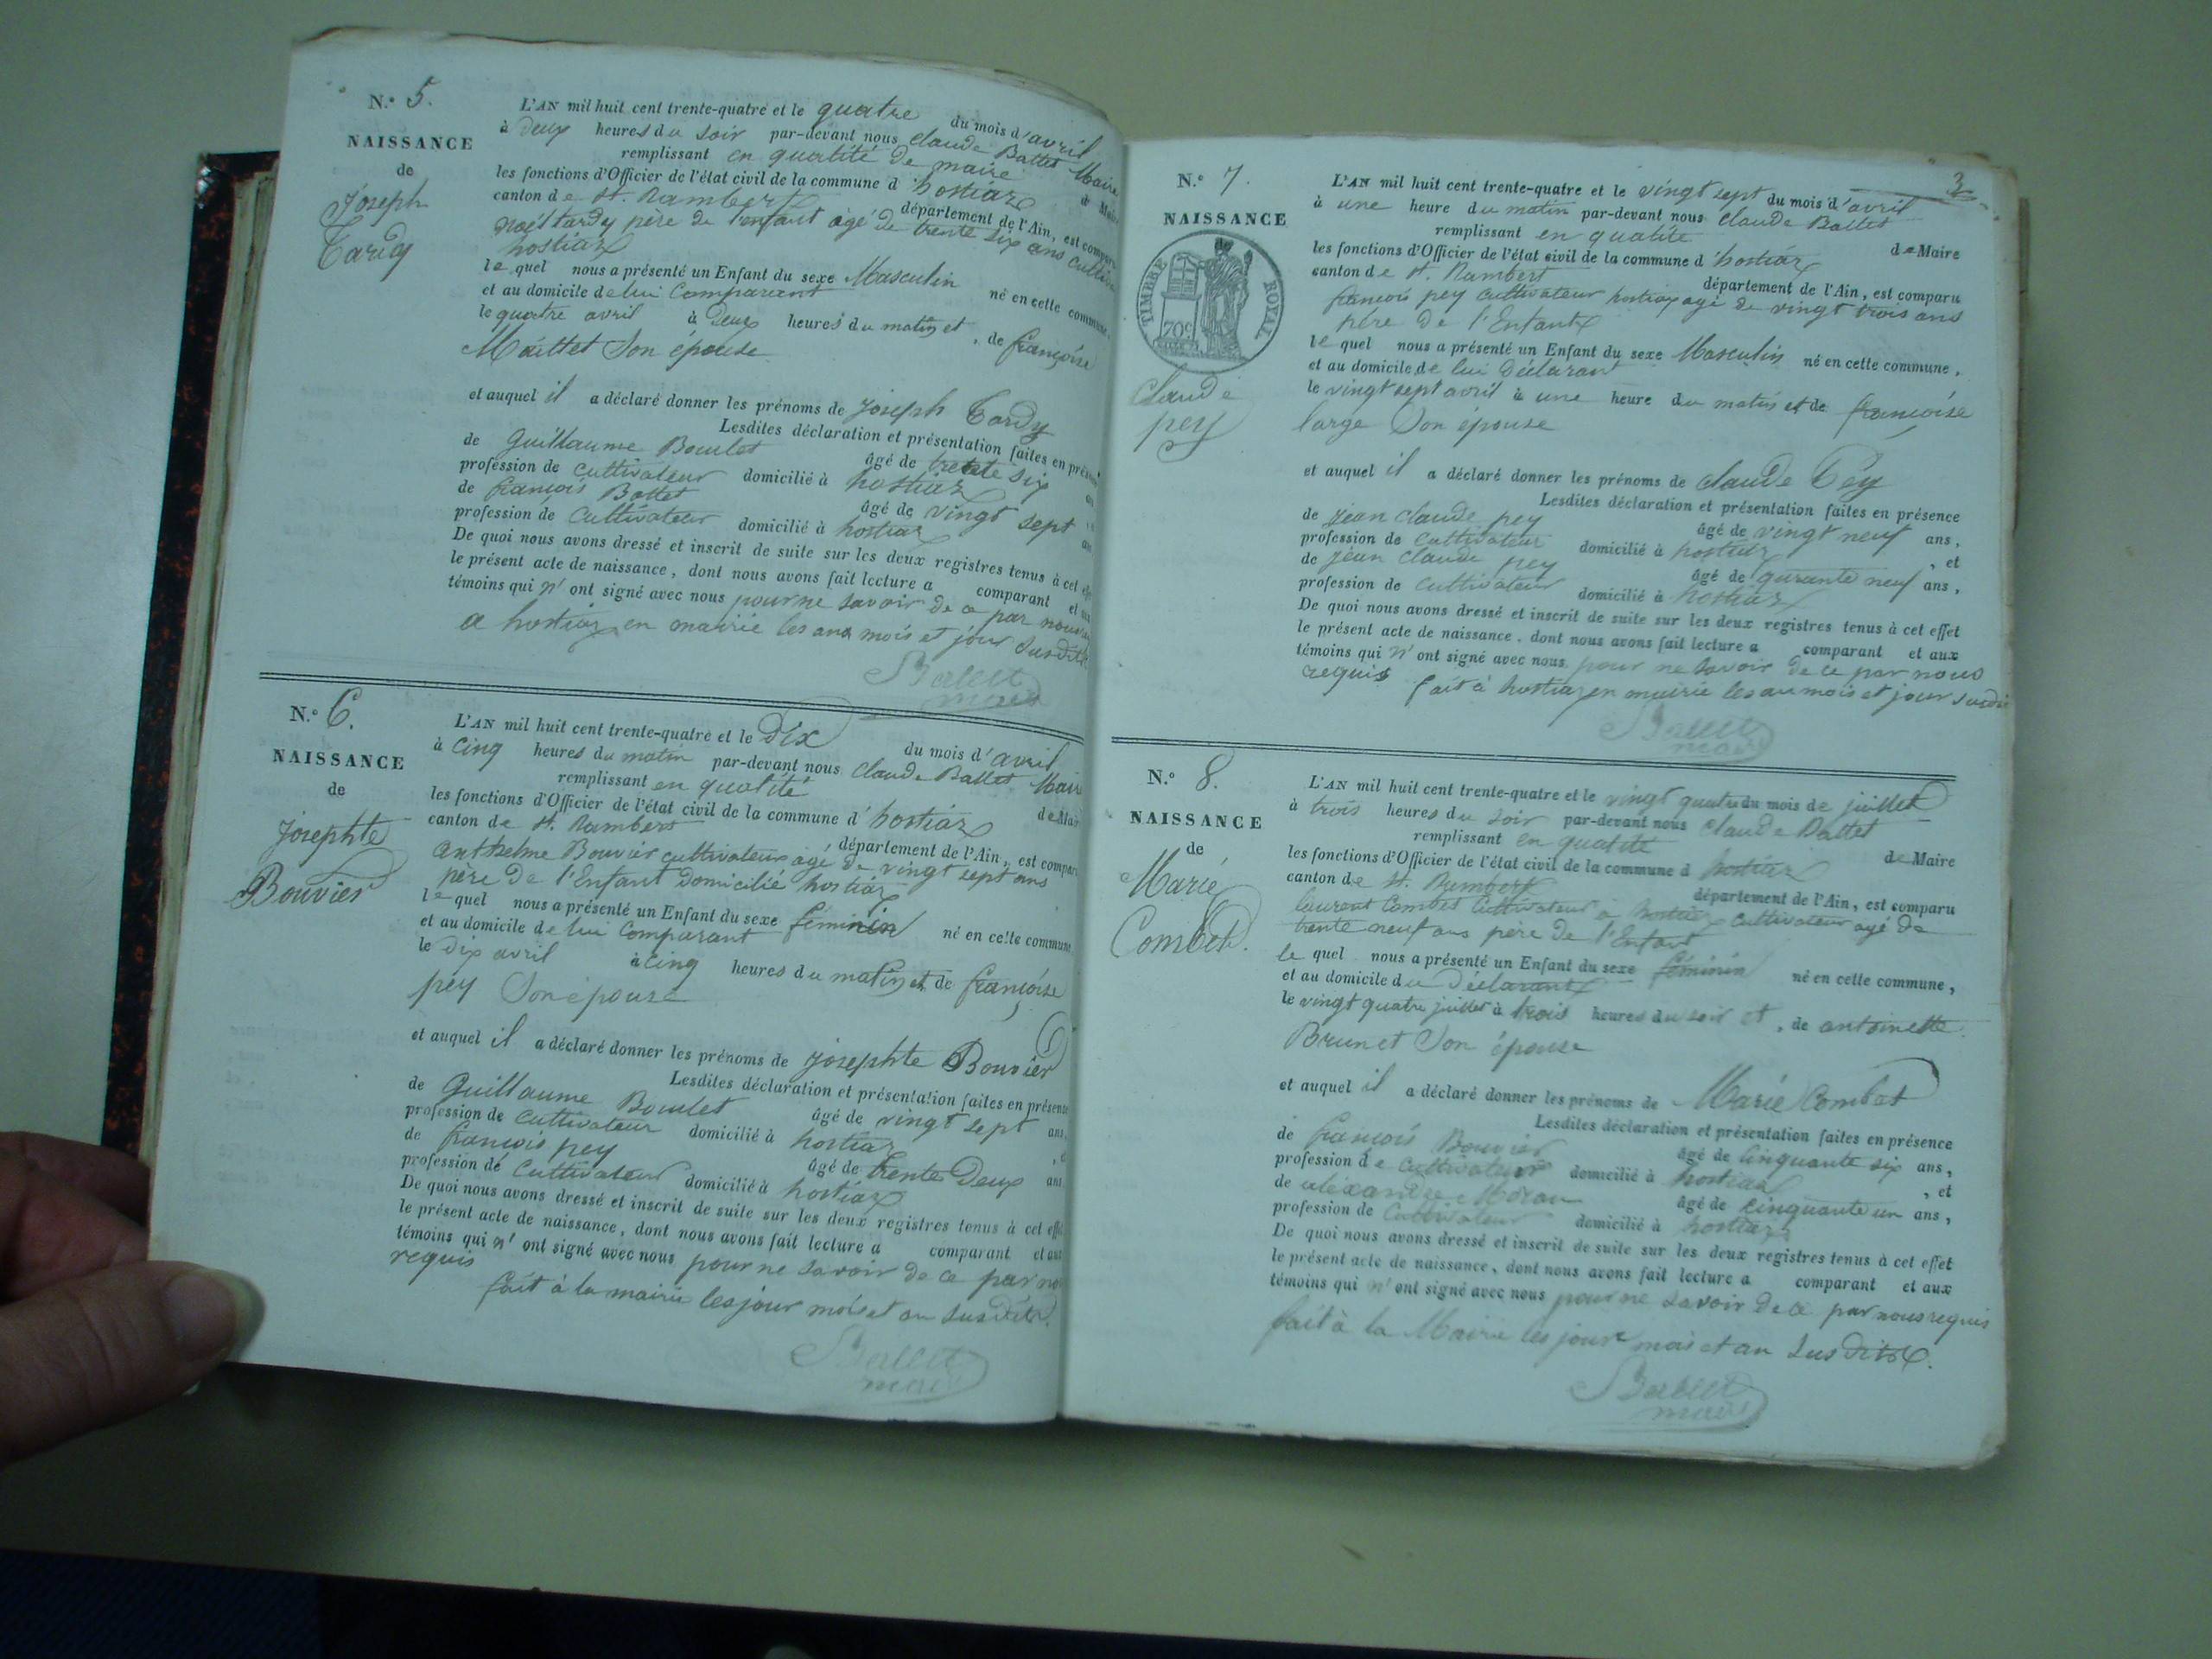 N.° 5.
NAISSANCE
de
Joseph
Tardy
L'AN mil huit cent trente-quatre et le quatre du mois d'avril
à deux heures du soir par-devant nous Claude Ballet Maire
remplissant en qualité de maire
les fonctions d'Officier de l'état civil de la commune d'hostiaz
canton de st. Rambert département de l'Ain, est comparu
noël tardy père de l'enfant agé de trente six ans
hostiaz
lequel nous a présenté un Enfant du sexe Masculin né en cette commune,
et au domicile de lui Comparant
le quatre avril à Deux heures du matin et, de françoise
Maittet Son épouse
et auquel il a déclaré donner les prénoms de joseph Tardy
Lesdites déclaration et présentation faites en
de Guillaume Boulet âgé de trente six
profession de cultivateur domicilié à hostiaz
de francois Ballet âgé de vingt sept
profession de Cultivateur domicilié à hostiaz
De quoi nous avons dressé et inscrit de suite sur les deux registres tenus à cet
le présent acte de naissance, dont nous avons fait lecture a comparant et aux
témoins qui n' ont signé avec nous pour ne savoir de ce par nous
a hostiaz en mairie les ans mois et jour susdits
Ballet
maire
N.° 6.
NAISSANCE
de
josephte
Bouvier
L'AN mil huit cent trente-quatre et le Dix du mois d'avril
à Cinq heures du matin par-devant nous Claude Ballet Maire
remplissant en qualité de Maire
les fonctions d'Officier de l'état civil de la commune d'hostiaz
canton de st. Rambert département de l'Ain, est comparu
anthelme Bouvier cultivateur agé de vingt sept ans
père de l'Enfant domicilié hostiaz
lequel nous a présenté un Enfant du sexe féminin né en cette commune
et au domicile de lui comparant
le Dix avril à cinq heures du matin et de françoise
pey Son épouse
et auquel il a déclaré donner les prénoms de josephte Bouvier
Lesdites déclaration et présentation faites en présence
de Guillaume Boulet âgé de vingt sept ans,
profession de cultivateur domicilié à hostiaz
de francois pey âgé de trente Deux ans
profession de Cultivateur domicilié à hostiaz
De quoi nous avons dressé et inscrit de suite sur les deux registres tenus à cet
le présent acte de naissance, dont nous avons fait lecture a comparant et aux
témoins qui n' ont signé avec nous pour ne savoir de ce par
requis
fait à la mairie les jour mois et an susdits.
Ballet
maire
3
N.° 7.
NAISSANCE
TIMBRE ROYAL
70c
Claude
pey
L'AN mil huit cent trente-quatre et le vingt sept du mois d'avril
à une heure du matin par-devant nous Claude Ballet
remplissant en qualité de Maire
les fonctions d'Officier de l'état civil de la commune d'hostiaz
canton de st. Rambert département de l'Ain, est comparu
francois pey cultivateur hostiaz agé de vingt trois ans
père de l'Enfant
lequel nous a présenté un Enfant du sexe Masculin né en cette commune,
et au domicile de lui déclarant
le vingt sept avril à une heure du matin et de francoise
large Son épouse
et auquel il a déclaré donner les prénoms de claude Pey
Lesdites déclaration et présentation faites en présence
de jean claude pey âgé de vingt neuf ans,
profession de cultivateur domicilié à hostiaz, et
de jean claude pey âgé de qurante neuf ans,
profession de cultivateur domicilié à hostiaz
De quoi nous avons dressé et inscrit de suite sur les deux registres tenus à cet effet
le présent acte de naissance, dont nous avons fait lecture a comparant et aux
témoins qui n' ont signé avec nous pour ne savoir de ce par nous
requis
fait à hostiaz en mairie les an mois et jour susdits
Ballet
maire
N.° 8.
NAISSANCE
de
Marie
Combet.
L'AN mil huit cent trente-quatre et le vingt quatre du mois de juillet
à trois heures du soir par-devant nous Claude Ballet
remplissant en qualité de Maire
les fonctions d'Officier de l'état civil de la commune d hostiaz
canton de st. Rambert département de l'Ain, est comparu
laurent Combet Cultivateur à hostiaz cultivateur agé de
trente neuf ans père de l'Enfant
le quel nous a présenté un Enfant du sexe féminin né en cette commune,
et au domicile du Déclarant
le vingt quatre juillet à trois heures du soir et, de antoinette
Brunet Son épouse
et auquel il a déclaré donner les prénoms de Marie Combet
Lesdites déclaration et présentation faites en présence
de francois Bouvier âgé de Cinquante six ans,
profession de cultivateur domicilié à hostiaz, et
de alexandre Moran âgé de cinquante un ans,
profession de Cultivateur domicilié à hostiaz
De quoi nous avons dressé et inscrit de suite sur les deux registres tenus à cet effet
le présent acte de naissance, dont nous avons fait lecture a comparant et aux
témoins qui n' ont signé avec nous pour ne savoir de ce par nous requis
fait à la Mairie les jour mois et an susdits.
Ballet
maire